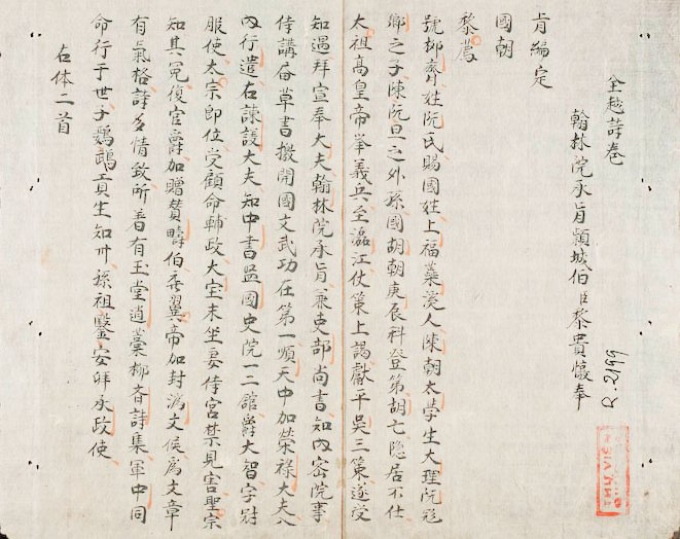 全越詩卷
翰林院承旨潁城伯臣黎貴惇奉
旨編定
國朝
黎廌
號抑齋姓阮氏賜國姓上福蘂溪人陳朝太學生大理阮飛
卿之子陳阮旦之外孫國胡朝庚辰科登第胡亡隱居不仕
太祖高皇帝举義兵至瀘江仗策上謁獻平吳三策遂受
知遇拜宣奉大夫翰林院承旨兼吏部尚書知內密院事
侍講居草書檄開國文武功在第一順天中加榮祿大夫入
內行遣右諫議大夫知中書監國史院一二館爵大智字冠
服使太宗即位受顧命輔政大宝末坐妾侍宮禁見害聖宗
知其冤復官爵加贈賛疇伯襄翼帝加封济文侯爲文章
有氣格詩多情致所著有玉堂遺藁抑齋詩集軍中同
命行于世子鸚鵡工真生知卅孫祖鑒安邦承政使
古体二首
R.2199
THƯ VIỆN